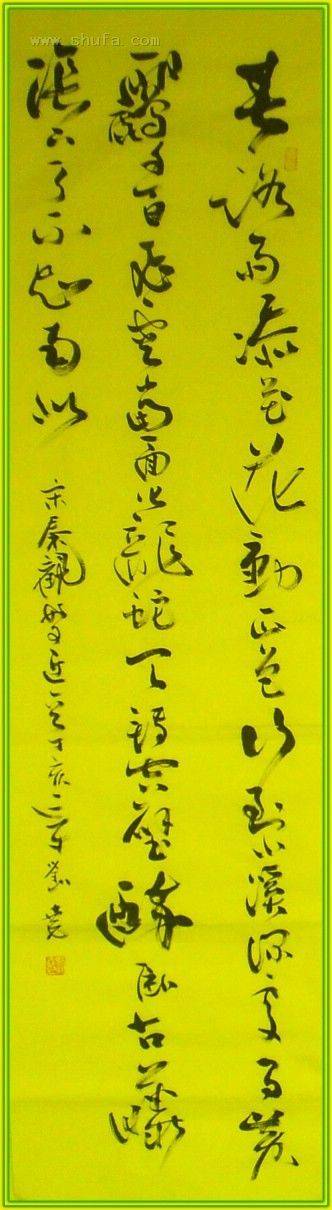 www.shufa.com
春路雨添花花動一山春色行到小溪深處有黃
鸝千百飛雲當面化龍蛇夭轉空碧醉臥古藤
陰下了不知南北
宋秦觀好事近丁亥